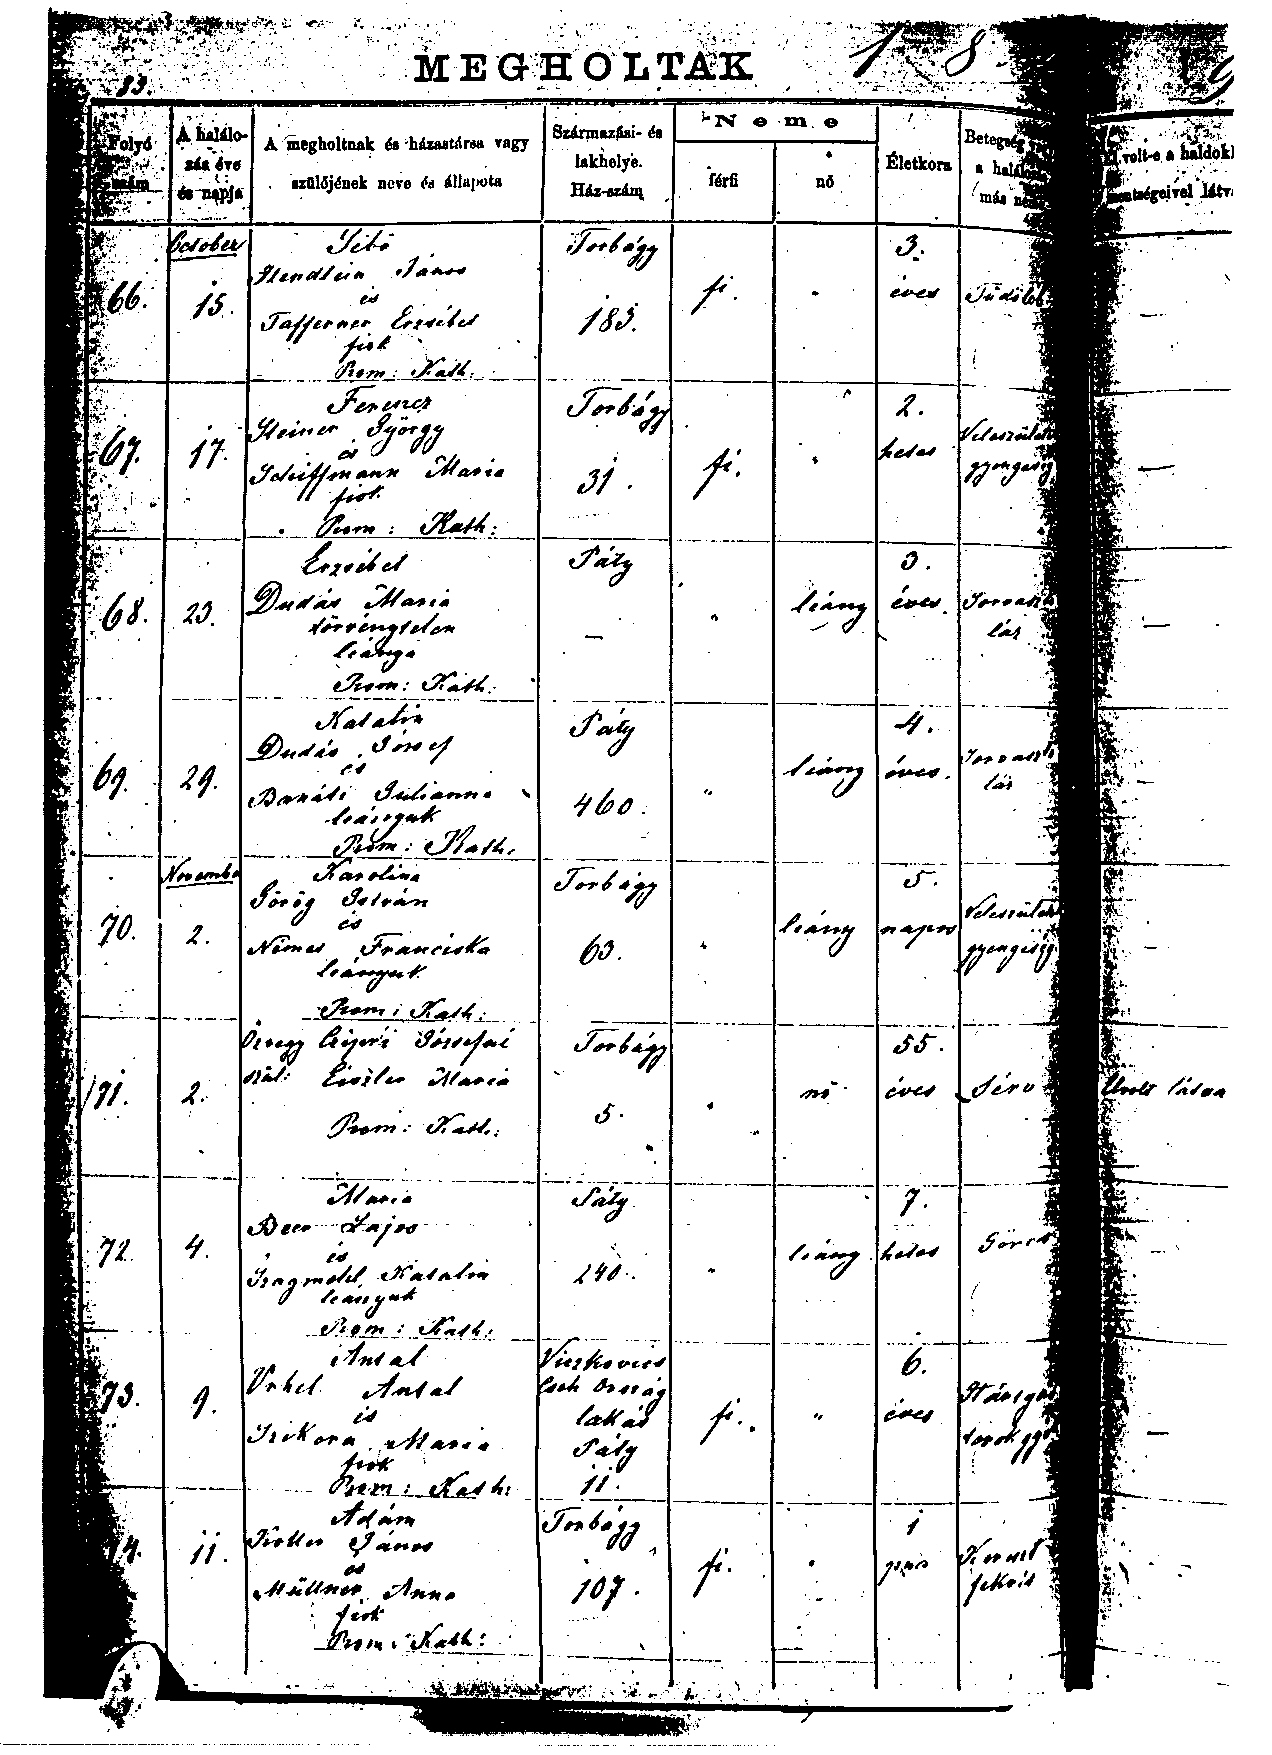 83.
MEGHOLTAK
18
9
Folyó szám
A halálozás éve és napja
A megholtnak és házastársa vagy szülőjének neve és állapota
Származási- és lakhelye. Ház-szám
Neme
férfi
nő
Életkora
Betegség
a halál
más ne
volt-e a haldokl
entségeivel látv
October
66.
15.
János
és
Tafferner Erzsébet
fiok
Rom: Kath:
Torbágy
183.
fi.
"
3.
éves
67.
17.
Ferencz
Steiner György
és
Schiffmann Maria
fiok
Rom: Kath:
Torbágy
31.
fi.
"
2.
hetes
Veleszület
gyengeség
—
68.
23.
Erzsébet
Dudás Maria
törvénytelen
leánya
Rom: Kath:
Páty
—
"
leány
3.
éves.
Sorvaszt
láz
—
69.
29.
Katalin
Dudás József
és
Baráti Julianna
leányuk
Rom: Kath:
Páty
460.
"
leány
4.
éves.
Sorvaszt
láz
—
November
70.
2.
Karolina
Görög István
és
Nemes Franciska
leányuk
Rom: Kath:
Torbágy
63.
"
leány
5.
napos
Veleszület
gyengeség
71.
2.
Özvegy Józsefné
szül: Eiszler Maria
Rom: Kath:
Torbágy
5.
"
nő
55.
éves
Sérv
El volt látva
72.
4.
Maria
Beer Lajos
és
Katalin
leányuk
Rom: Kath:
Páty
240.
"
leány
7.
hetes
Görcs
73.
9.
Antal
Antal
és
Szikora Maria
fiok
Rom: Kath:
Cseh Ország
lakás
Páty
11.
fi.
"
6.
éves
Hártyás
torokgy
—
74.
11.
Adám
János
és
Müllner Anna
fiok
Rom: Kath:
Torbágy
107.
fi.
"
1
Kereszt
fekvés
—